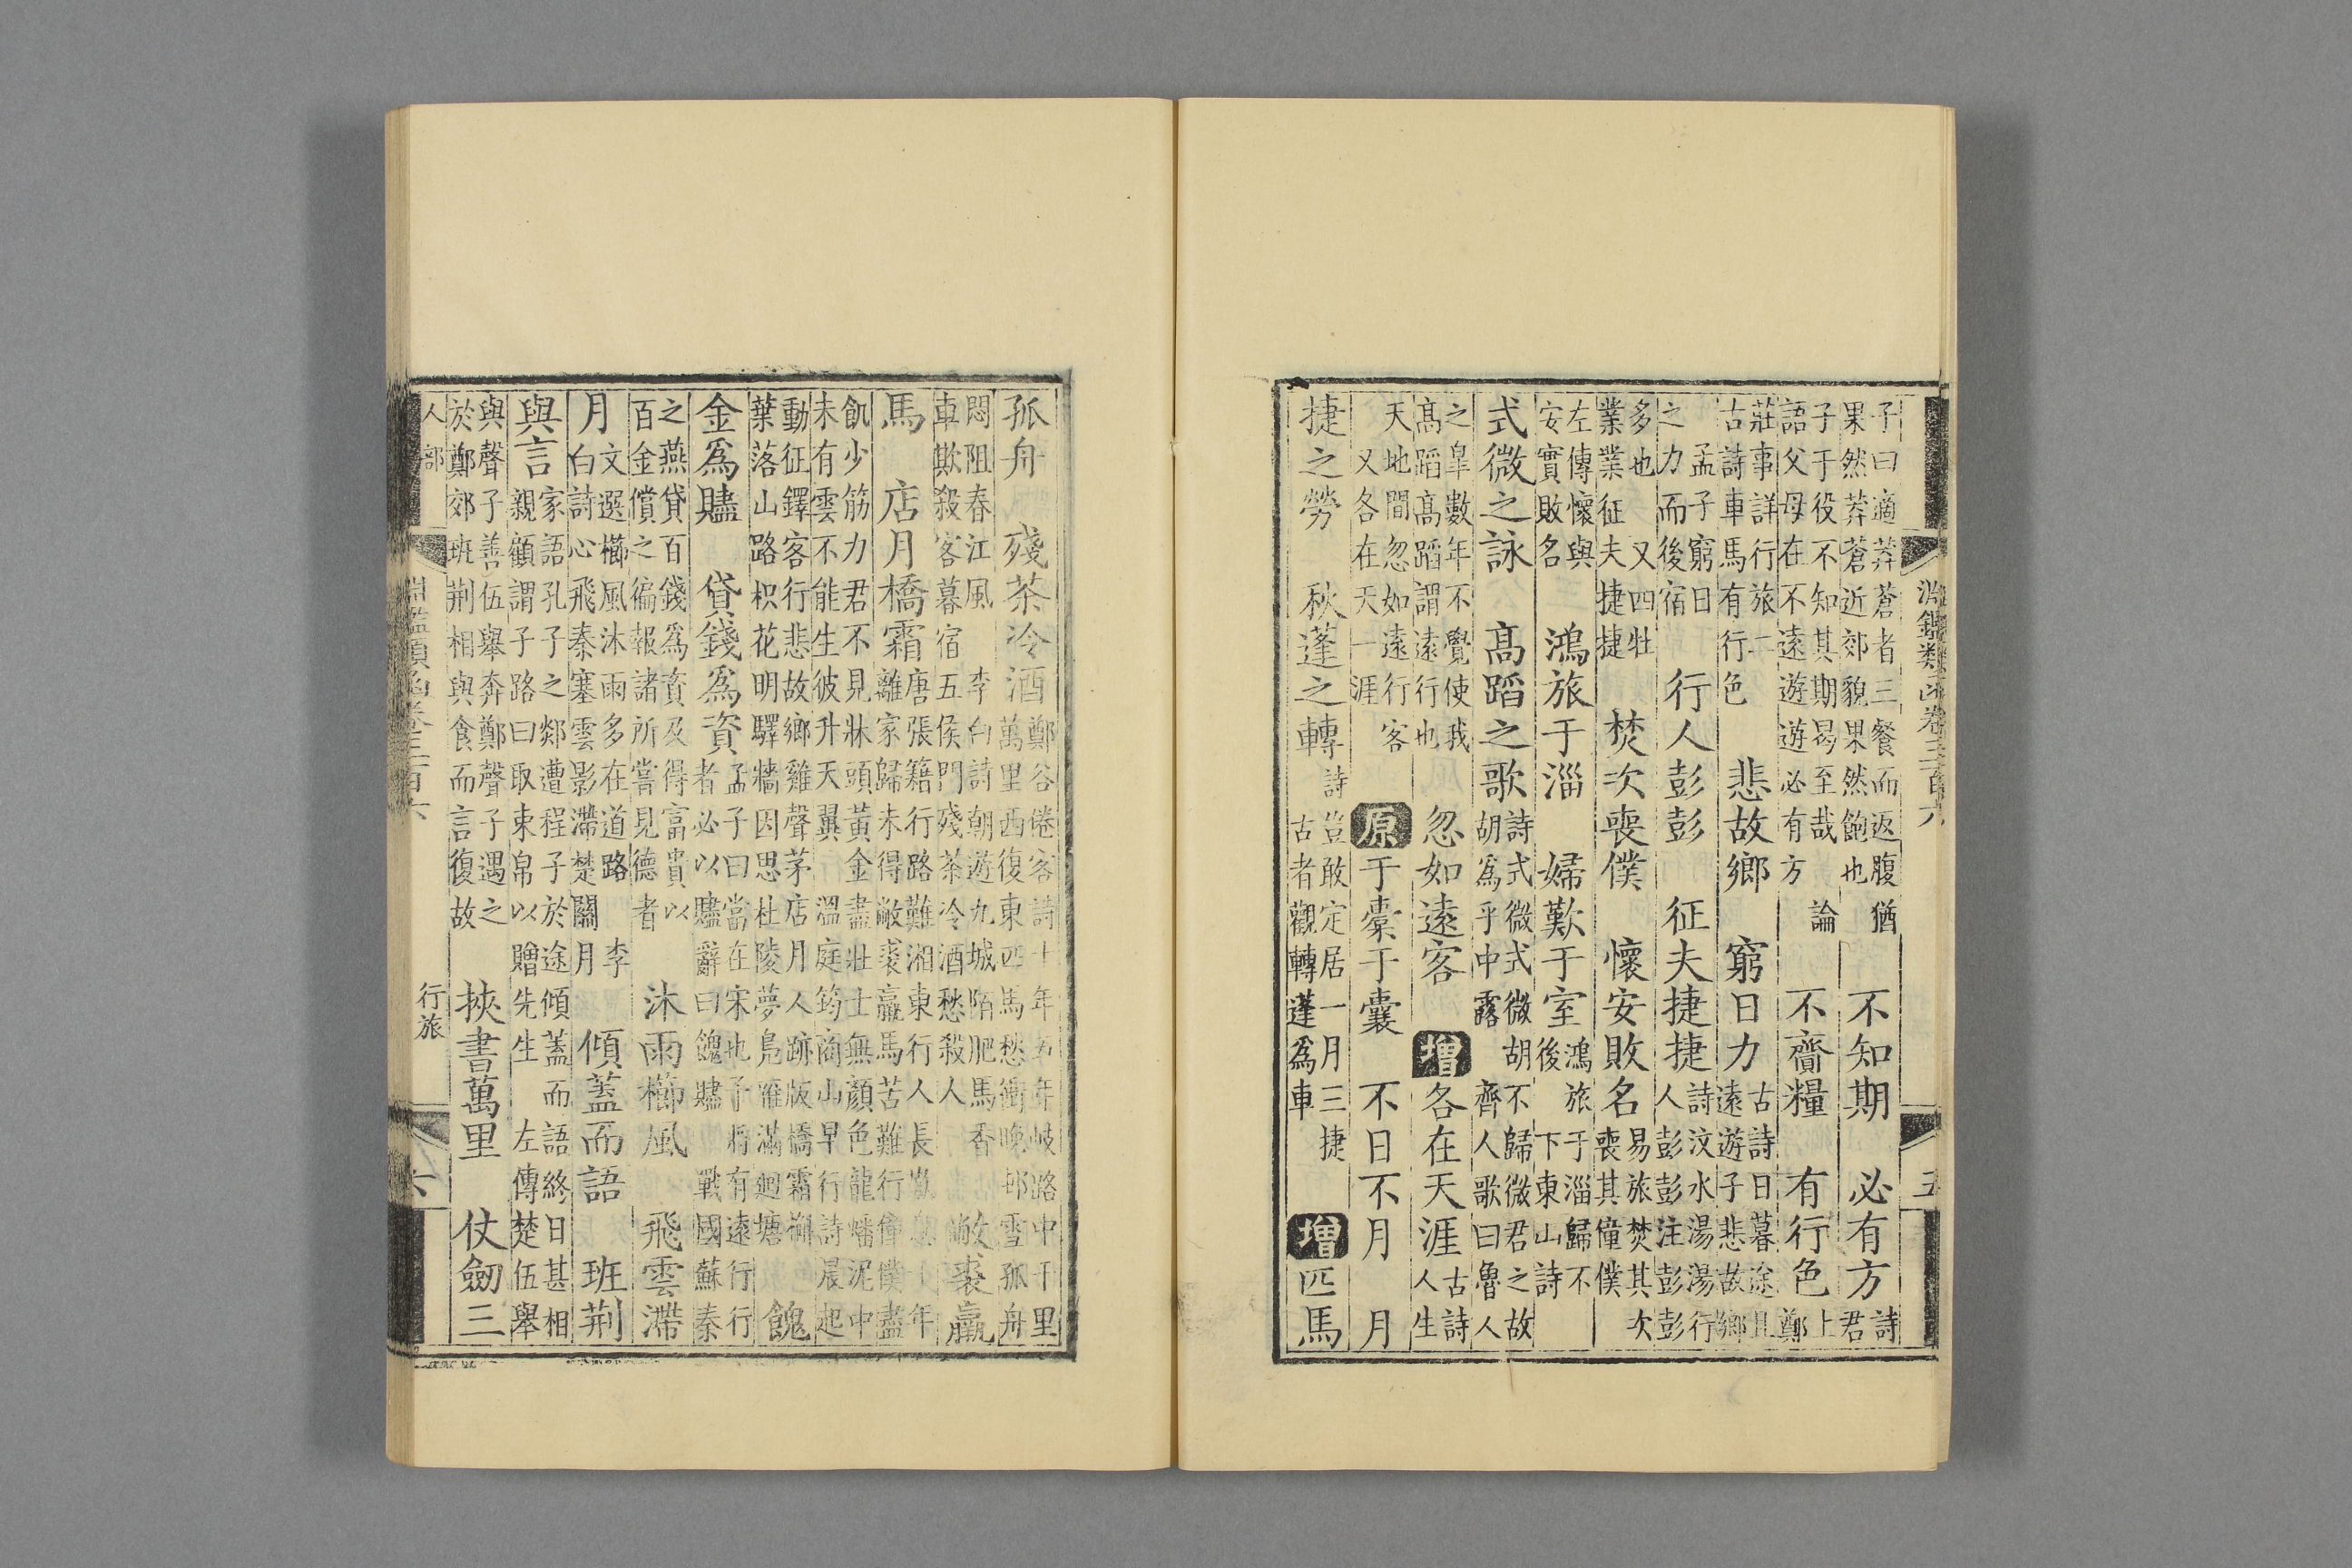 淵鑑類函卷三百六 五
子曰適莽蒼者三餐而返腹猶
果然莽蒼近郊貌果然飽也
不知期 必有方 詩
君
子于役不知其期曷至哉 論
語父母在不遠遊遊必有方
不齎糧 有行色 上
鄭
莊事詳行旅二
古詩車馬有行色
悲故鄉 窮日力 古詩日暮途且
遠遊子悲故鄉
孟子窮日
之力而後宿
行人彭彭 征夫捷捷 詩汶水湯湯行
人彭彭注彭彭
多也 又四牡
業業征夫捷捷
焚次喪僕 懷安敗名 易旅焚其次
喪其僮僕
左傳懷與
安實敗名
鴻旅于淄 婦歎于室 鴻旅于淄歸不
後下東山詩
式微之詠 高蹈之歌 詩式微式微胡不歸微君之故
胡爲乎中露 齊人歌曰魯人
之臯數年不覺使我
高蹈高蹈謂遠行也
忽如遠客 增 各在天涯 古詩
人生
天地間忽如遠行客
又各在天一涯
原 于橐于囊 不日不月 月
捷之勞 秋蓬之轉 詩豈敢定居一月三捷
古者觀轉蓬爲車
增 匹馬
孤舟 殘茶冷酒 鄭谷倦客詩十年五年岐路中千里
萬里西復東匹馬愁衝晚邨雪孤舟
悶阻春江風 李白詩朝遊九城陌肥馬香
車欺殺客暮宿五侯門殘茶冷酒愁殺人
敝裘羸
馬 店月橋霜 唐張籍行路難湘東行人長歎息十年
離家歸未得敝裘羸馬苦難行僮僕盡
飢少筋力君不見牀頭黃金盡壯士無顏色龍蟠泥中
未有雲不能生彼升天翼 溫庭筠商山早行詩晨起
動征鐸客行悲故鄉雞聲茅店月人跡版橋霜槲
葉落山路枳花明驛牆因思杜陵夢鳧雁滿迴塘
餽
金爲贐 貸錢爲資 孟子曰當在宋也予將有遠行行
者必以贐辭曰餽贐 戰國蘇秦
之燕貸百錢爲資及得富貴以
百金償之徧報諸所嘗見德者
沐雨櫛風 飛雲滯
月 文選櫛風沐雨多在道路 李
白詩心飛秦塞雲影滯楚關月
傾蓋而語 班荆
與言 家語孔子之郯遭程子於途傾蓋而語終日甚相
親顧謂子路曰取束帛以贈先生 左傳楚伍舉
與聲子善伍舉奔鄭聲子遇之
於鄭郊班荆相與食而言復故
挾書萬里 仗劒三
人部 淵鑑類函卷三百六 行旅 六